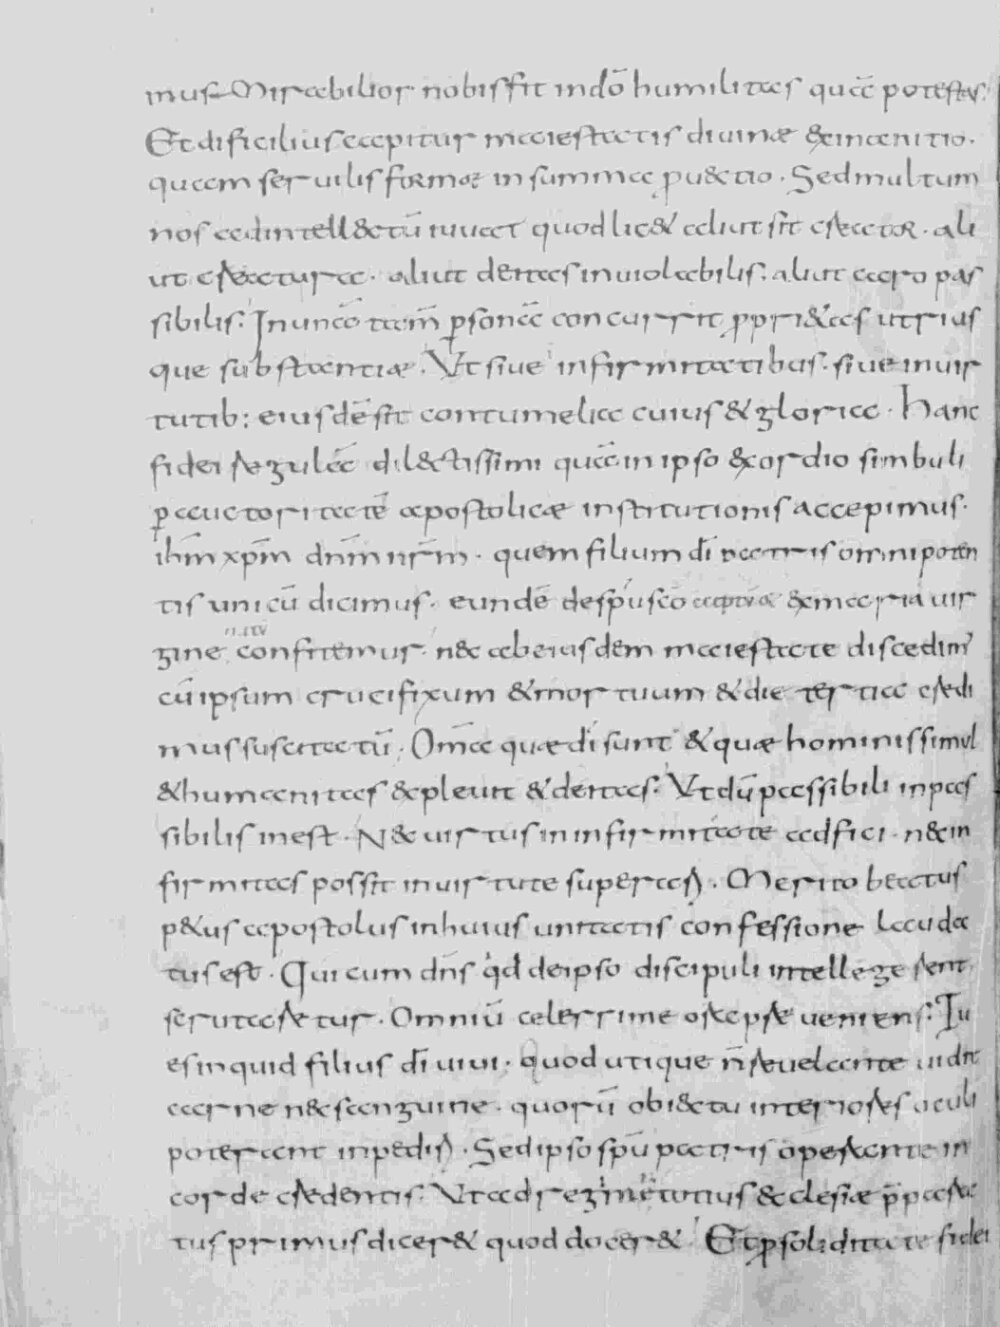 mus. Mirabilior nobis fit in dō humilitas quā potestas.
Et dificilius capitur maiestatis divinæ exinanitio.
quam servilis formæ in summa pvectio. Sed multum
nos ad intellectū iuvat quod licet aliut sit creator. ali
ut creatura. aliut deitas inviolabilis. aliut caro pas
sibilis. In unāo tam̄ psonā concurrit pprietas utrius
que substantiæ. Ut sive infirmitatibus. sive in vir
tutib: eiusdē sit contumelia cuius et gloria. Hanc
fidei regulā dilectissimi quā in ipso exordio simbuli
p auctoritatē apostolicæ institutionis accepimus.
ihm̄ xpm̄ dnm̄ nrm̄. quem filium dī patris omnipoten
tis unicū dicimus. eundē de spū sco et maria vir
gine confitemur. nec ab eiusdem maiestate discedim'
cū ipsum crucifixum et mortuum et die tertia credi
mus suscitatū. Om̄a quæ dī sunt et quæ hominis simul
et humanitas expleuit et deitas. Ut dū passibili inpas
sibilis inest. Nec virtus in infirmitate adfici. nec in
firmitas possit in virtute superari. Merito beatus
petrus apostolus in huius unitatis confessione lauda
tus est. Qui cum dns qd de ipso discipuli intellegerent
scrutaretur. Omniū celerrime ore preveniens. Tu
es inquid filius dī vivi. quod utique n̄ revelante vidit
carne nec sanguine. quorū obiectu interiores oculi
poterant inpediri. Sed ipso spū patris operante in
corde credentis. Ut ad regimen totius eclesiæ p̄para
tus primus diceret quod doceret. Et p soliditate fidei